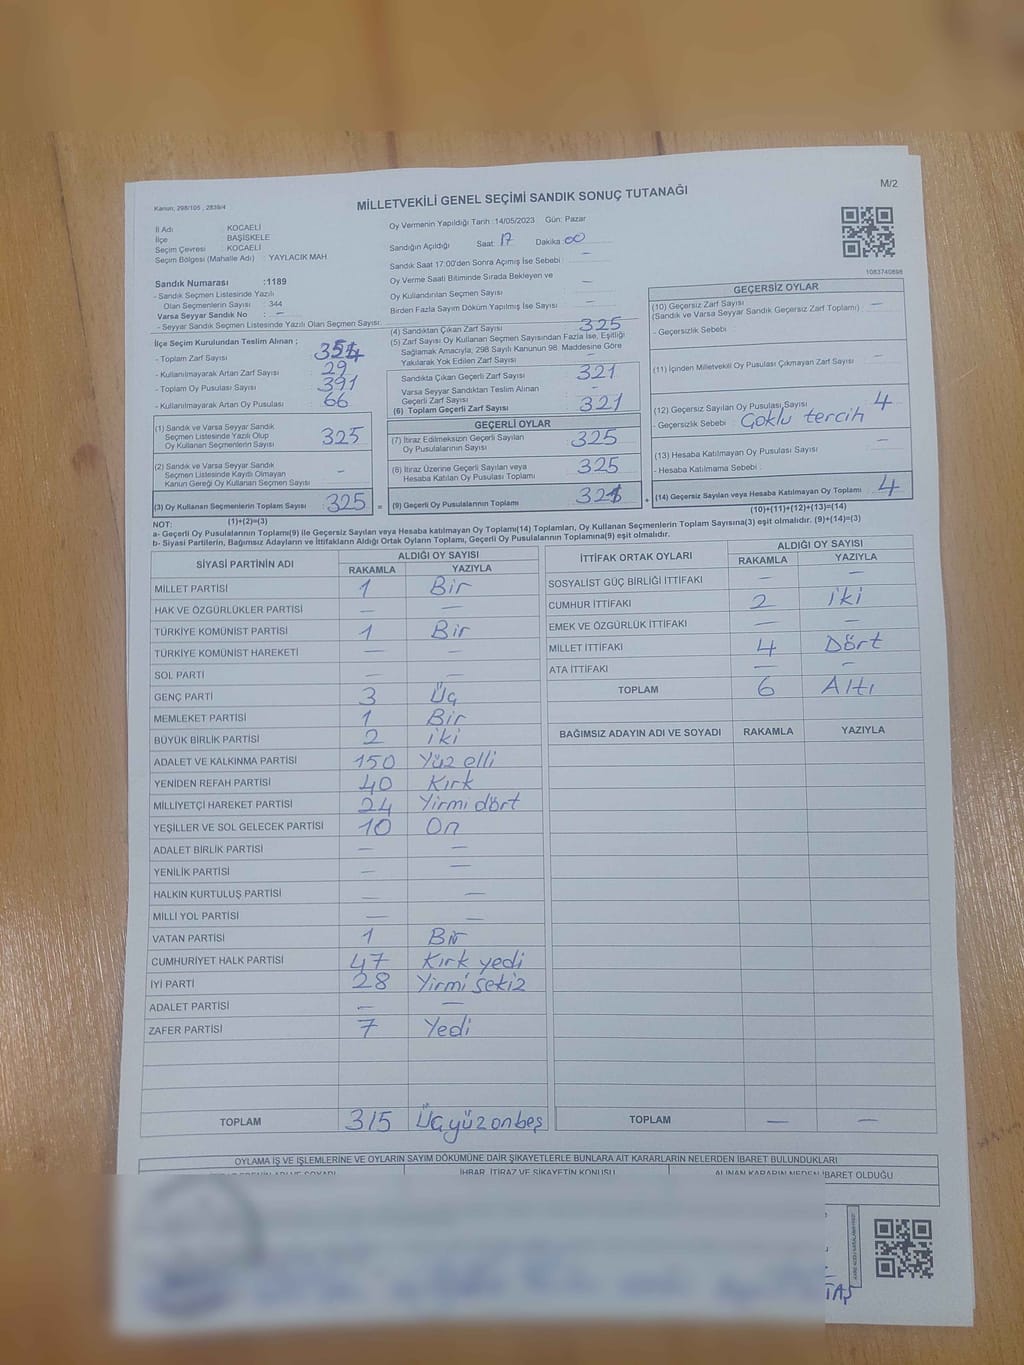 Kanun, 298/105 , 2839/4
MİLLETVEKİLİ GENEL SEÇİMİ SANDIK SONUÇ TUTANAĞI
M/2
İl Adı : KOCAELİ
İlçe : BAŞİSKELE
Seçim Çevresi : KOCAELİ
Seçim Bölgesi (Mahalle Adı) : YAYLACIK MAH.
Sandık Numarası :1189
- Sandık Seçmen Listesinde Yazılı
Olan Seçmenlerin Sayısı : 344
Varsa Seyyar Sandık No : –
- Seyyar Sandık Seçmen Listesinde Yazılı Olan Seçmen Sayısı:
İlçe Seçim Kurulundan Teslim Alınan ;
- Toplam Zarf Sayısı
- Kullanılmayarak Artan Zarf Sayısı : 29
- Toplam Oy Pusulası Sayısı : 391
- Kullanılmayarak Artan Oy Pusulası : 66
(1) Sandık ve Varsa Seyyar Sandık
Seçmen Listesinde Yazılı Olup
Oy Kullanan Seçmenlerin Sayısı : 325
(2) Sandık ve Varsa Seyyar Sandık
Seçmen Listesinde Kayıtlı Olmayan
Kanun Gereği Oy Kullanan Seçmen Sayısı : –
(3) Oy Kullanan Seçmenlerin Toplam Sayısı : 325 =
(1)+(2)=(3)
Oy Vermenin Yapıldığı Tarih :14/05/2023 Gün: Pazar
Sandığın Açıldığı Saat: 17 Dakika: 00
Sandık Saat 17:00'den Sonra Açımış İse Sebebi : –
Oy Verme Saati Bitiminde Sırada Bekleyen ve
Oy Kullandırılan Seçmen Sayısı : –
Birden Fazla Sayım Döküm Yapılmış İse Sayısı : –
(4) Sandıktan Çıkan Zarf Sayısı : 325
(5) Zarf Sayısı Oy Kullanan Seçmen Sayısından Fazla İse, Eşitliği
Sağlamak Amacıyla, 298 Sayılı Kanunun 98. Maddesine Göre
Yakılarak Yok Edilen Zarf Sayısı : –
Sandıkta Çıkan Geçerli Zarf Sayısı : 321
Varsa Seyyar Sandıktan Teslim Alınan
Geçerli Zarf Sayısı : –
(6) Toplam Geçerli Zarf Sayısı : 321
GEÇERLİ OYLAR
(7) İtiraz Edilmeksizin Geçerli Sayılan
Oy Pusulalarının Sayısı : 325
(8) İtiraz Üzerine Geçerli Sayılan veya
Hesaba Katılan Oy Pusulası Toplamı : 325
(9) Geçerli Oy Pusulalarının Toplamı : 321 +
1083740898
GEÇERSİZ OYLAR
(10) Geçersiz Zarf Sayısı : –
(Sandık ve Varsa Seyyar Sandık Geçersiz Zarf Toplamı)
- Geçersizlik Sebebi :
(11) İçinden Milletvekili Oy Pusulası Çıkmayan Zarf Sayısı : –
(12) Geçersiz Sayılan Oy Pusulası Sayısı : 4
- Geçersizlik Sebebi : Çoklu tercih
(13) Hesaba Katılmayan Oy Pusulası Sayısı : –
- Hesaba Katılmama Sebebi :
(14) Geçersiz Sayılan veya Hesaba Katılmayan Oy Toplamı : 4
(10)+(11)+(12)+(13)=(14)
NOT:
a- Geçerli Oy Pusulalarının Toplamı(9) ile Geçersiz Sayılan veya Hesaba katılmayan Oy Toplamı(14) Toplamları, Oy Kullanan Seçmenlerin Toplam Sayısına(3) eşit olmalıdır. (9)+(14)=(3)
b- Siyasi Partilerin, Bağımsız Adayların ve İttifakların Aldığı Ortak Oyların Toplamı, Geçerli Oy Pusulalarının Toplamına(9) eşit olmalıdır.
SİYASİ PARTİNİN ADI ALDIĞI OY SAYISI
RAKAMLA YAZIYLA
MİLLET PARTİSİ 1 Bir
HAK VE ÖZGÜRLÜKLER PARTİSİ – –
TÜRKİYE KOMÜNİST PARTİSİ 1 Bir
TÜRKİYE KOMÜNİST HAREKETİ – –
SOL PARTİ – –
GENÇ PARTİ 3 Üç
MEMLEKET PARTİSİ 1 Bir
BÜYÜK BİRLİK PARTİSİ 2 iki
ADALET VE KALKINMA PARTİSİ 150 Yüz elli
YENİDEN REFAH PARTİSİ 40 Kırk
MİLLİYETÇİ HAREKET PARTİSİ 24 Yirmi dört
YEŞİLLER VE SOL GELECEK PARTİSİ 10 On
ADALET BİRLİK PARTİSİ – –
YENİLİK PARTİSİ – –
HALKIN KURTULUŞ PARTİSİ – –
MİLLİ YOL PARTİSİ – –
VATAN PARTİSİ 1 Bir
CUMHURİYET HALK PARTİSİ 47 Kırk yedi
İYİ PARTİ 28 Yirmi sekiz
ADALET PARTİSİ – –
ZAFER PARTİSİ 7 Yedi
TOPLAM 315 Üçyüzonbeş
İTTİFAK ORTAK OYLARI ALDIĞI OY SAYISI
RAKAMLA YAZIYLA
SOSYALİST GÜÇ BİRLİĞİ İTTİFAKI – –
CUMHUR İTTİFAKI 2 iki
EMEK VE ÖZGÜRLÜK İTTİFAKI – –
MİLLET İTTİFAKI 4 Dört
ATA İTTİFAKI – –
TOPLAM 6 Altı
BAĞIMSIZ ADAYIN ADI VE SOYADI RAKAMLA YAZIYLA
TOPLAM – –
OYLAMA İŞ VE İŞLEMLERİNE VE OYLARIN SAYIM DÖKÜMÜNE DAİR ŞİKAYETLERLE BUNLARA AİT KARARLARIN NELERDEN İBARET BULUNDUKLARI
İHBAR, İTİRAZ VE ŞİKAYETİN KONUSU ALINAN KARARIN NEDEN İBARET OLDUĞU